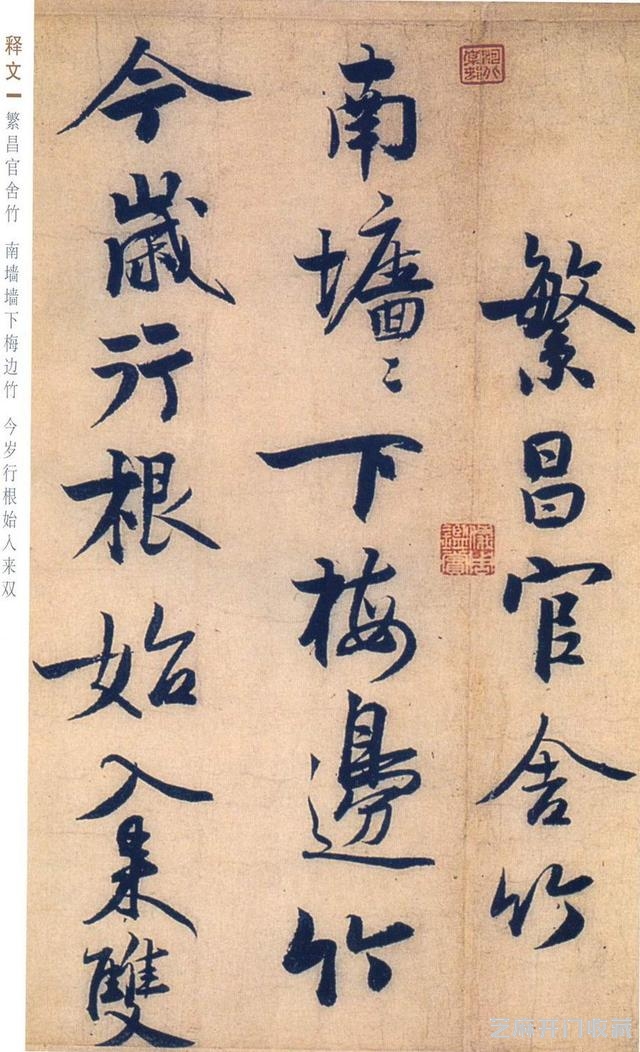 繁昌官舍竹
南墻〻下梅邊竹
今歲行根始入來雙
释文
繁昌官舍竹 南墙墙下梅边竹 今岁行根始入来双